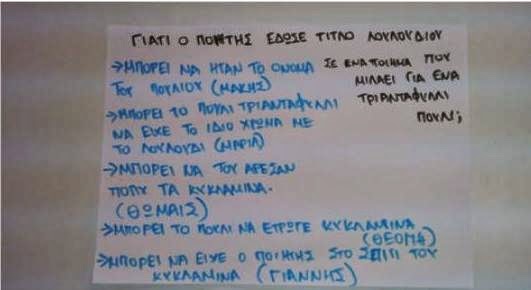 ΓΙΑΤΙ Ο ΠΟΙΗΤΗΣ ΕΔΩΣΕ ΤΙΤΛΟ ΛΟΥΛΟΥΔΙΟΥ
ΣΕ ΕΝΑ ΠΟΙΗΜΑ ΠΟΥ
ΜΙΛΑΕΙ ΓΙΑ ΕΝΑ
ΤΡΙΑΝΤΑΦΥΛΛΙ
ΠΟΥΛΙ;
→ΜΠΟΡΕΙ ΝΑ ΗΤΑΝ ΤΟ ΟΝΟΜΑ
ΤΟΥ ΠΟΥΛΙΟΥ (ΜΑΚΗΣ)
→ΜΠΟΡΕΙ ΤΟ ΠΟΥΛΙ ΤΡΙΑΝΤΑΦΥΛΛΙ
ΝΑ ΕΙΧΕ ΤΟ ΙΔΙΟ ΧΡΩΜΑ ΜΕ
ΤΟ ΛΟΥΛΟΥΔΙ (ΜΑΡΙΑ)
→ΜΠΟΡΕΙ ΝΑ ΤΟΥ ΑΡΕΣΑΝ
ΠΟΛΥ ΤΑ ΚΥΚΛΑΜΙΝΑ.
(ΘΩΜΑΙΣ)
→ΜΠΟΡΕΙ ΤΟ ΠΟΥΛΙ ΝΑ ΕΤΡΩΓΕ ΚΥΚΛΑΜΙΝΑ
(ΘΕΟΜΑ)
→ΜΠΟΡΕΙ ΝΑ ΕΙΧΕ Ο ΠΟΙΗΤΗΣ ΣΤΟ ΣΠΙΤΙ ΤΟΥ
ΚΥΚΛΑΜΙΝΑ (ΓΙΑΝΝΗΣ)